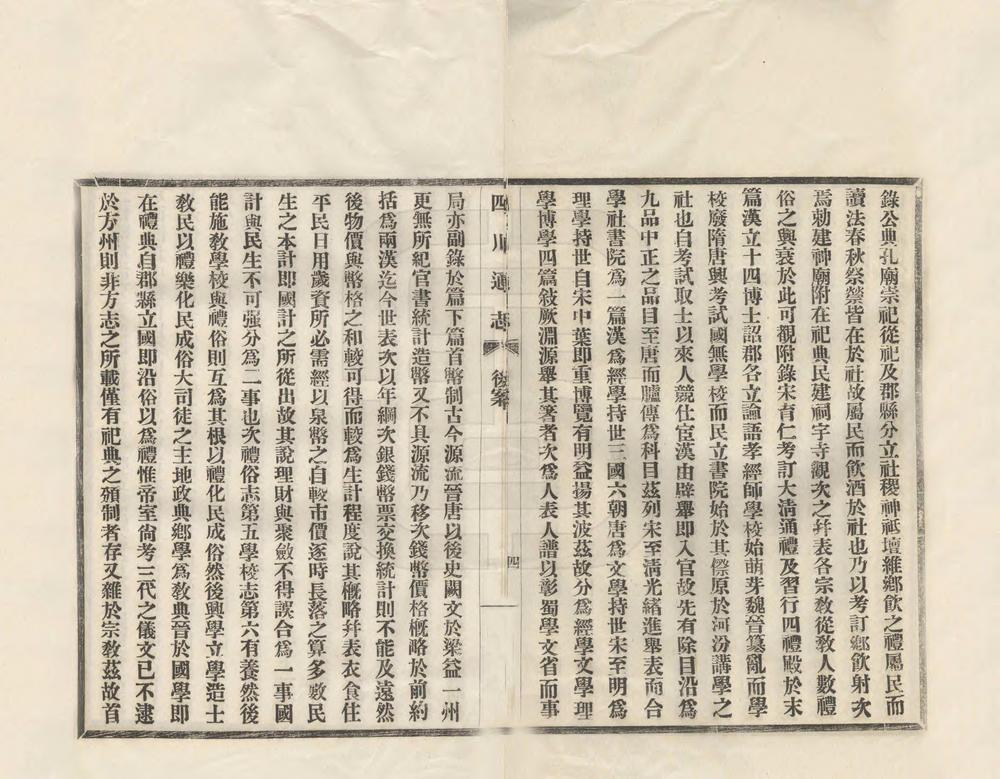 錄公典孔廟崇祀從祀及郡縣分立社稷神祗壇雜鄉飲之禮屬民而
讀法春秋祭禜皆在於社故屬民而飲酒於社也乃以考訂鄉飲射次
焉勅建神廟附在祀典民建祠宇寺觀次之幷表各宗教從教人數禮
俗之興衰於此可覩附錄宋育仁考訂大清通禮及習行四禮殿於末
篇漢立十四博士詔郡各立論語孝經師學校始萌芽魏晉篡亂而學
校廢隋唐興考試國無學校而民立書院始於其傺原於河汾講學之
社也自考試取士以來人競仕宦漢由辟舉即入官故先有除目沿為
九品中正之品目至唐而臚傳為科目茲列宋至淸光緒進舉表而合
學社書院為一篇漢為經學持世三國六朝唐為文學持世宋至明為
理學持世自宋中葉即重博覽有明益揚其波茲故分為經學文學理
學博學四篇敍厥淵源舉其著者次為人表人譜以彰蜀學文省而事
四川通志 後案 四
局亦副錄於篇下篇首幣制古今源流晉唐以後史闕文於梁益一州
更無所紀官書統計造幣又不具源流乃移次錢幣價格概略於前約
括為兩漢迄今世表次以年綱次銀錢幣票交換統計則不能及遠然
後物價與幣格之和較可得而較為生計程度說其概略幷表衣食住
平民日用歲資所必需經以泉幣之自較市價逐時長落之算多數民
生之本計即國計之所從出故其說理財與聚斂不得誤合為一事國
計與民生不可强分為二事也次禮俗志第五學校志第六有養然後
能施教學校與禮俗則互為其根以禮化民成俗然後興學立學造士
敎民以禮樂化民成俗大司徒之主地政典鄉學為敎典晉於國學即
在禮典自郡縣立國即沿俗以為禮惟帝室尙考三代之儀文已不逮
於方州則非方志之所載僅有祀典之頒制者存又雜於宗敎茲故首